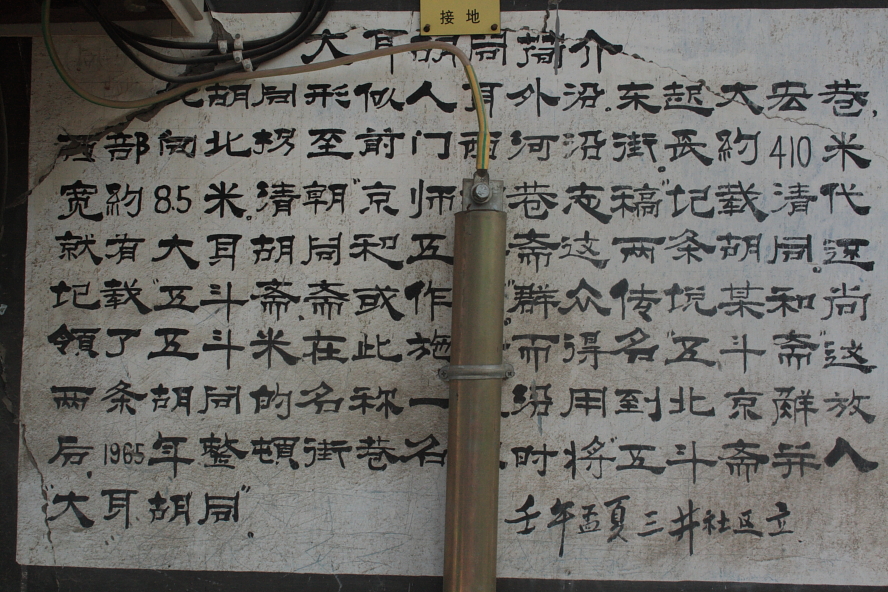 接地
大耳胡同简介
此胡同形似人耳外沿。东起大宏巷,
西部向北拐至前门西河沿街。长約410米
宽約8.5米。清朝"京师巷志稿"记载清代
就有大耳胡同和五斋这两条胡同。还
记载"五斗斋。斋或作"。群众传说某和尚
領了五斗米在此施而得名"五斗斋"这
两条胡同的名称一沿用到北京解放
后。1965年整顿街巷名时将"五斗斋并入
"大耳胡同"。
壬午孟夏三井社区立